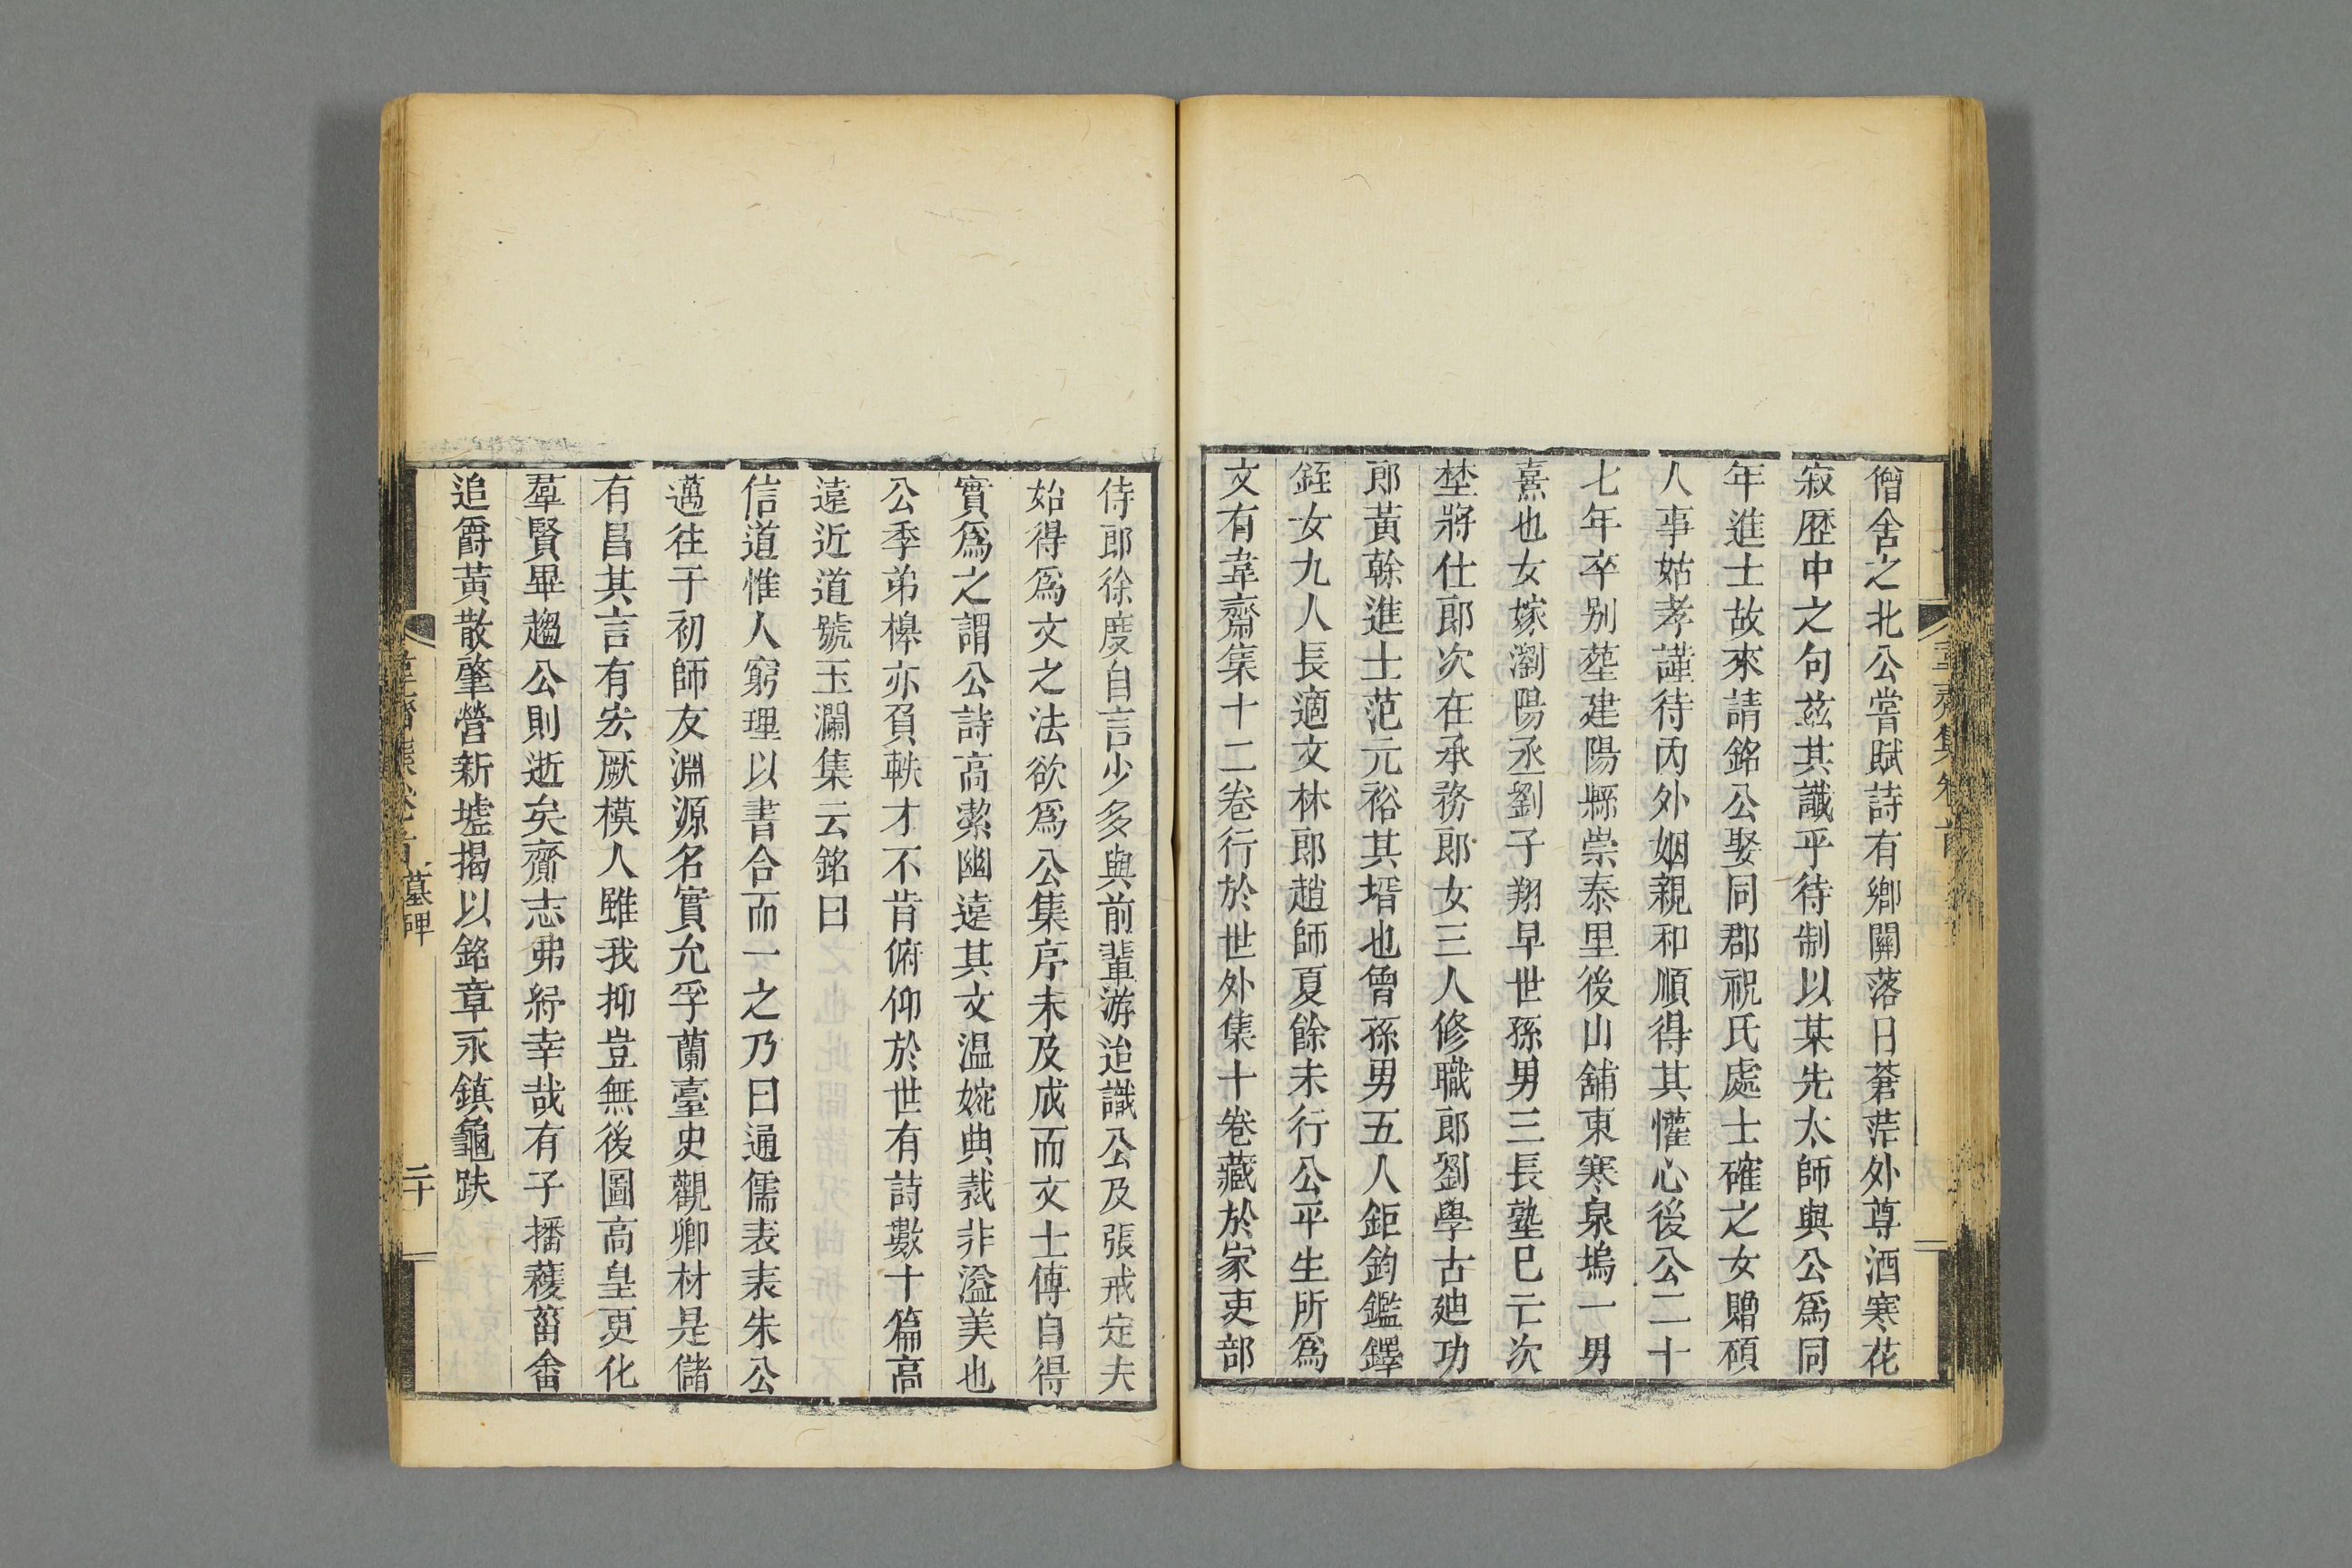 僧舍之北公嘗賦詩有鄉關落日蒼茫外尊酒寒花
寂歷中之句兹其讖乎待制以某先太師與公爲同
年進士故來請銘公娶同郡祝氏處士確之女贈碩
人事姑孝謹待內外姻親和順得其懽心後公二十
七年卒别塟建陽縣崇泰里後山舖東寒泉塢一男
熹也女嫁瀏陽丞劉子翔早世孫男三長塾巳亡次
埜將仕郎次在承務郎女三人修職郎劉學古廸功
郎黃榦進士范元裕其壻也曾孫男五人鉅鈞鑑鐸
銍女九人長適文林郎趙師夏餘未行公平生所爲
文有韋齋集十二卷行於世外集十卷藏於家吏部
侍郎徐度自言少多與前輩游迨識公及張戒定夫
始得爲文之法欲爲公集序未及成而文士傅自得
實爲之謂公詩高潔幽遠其文温婉典裁非溢美也
公季弟槔亦負軼才不肯俯仰於世有詩數十篇高
遠近道號玉瀾集云銘曰
信道惟人窮理以書合而一之乃曰通儒表表朱公
邁往于初師友淵源名實允孚蘭臺史觀卿材是儲
有昌其言有宏厥模人雖我抑豈無後圖高皇更化
羣賢畢趨公則逝矣齎志弗紓幸哉有子播穫菑畬
追爵黃散肇營新墟揭以銘章永鎮龜趺
韋齋集卷首
墓碑
二十
韋齋集卷首